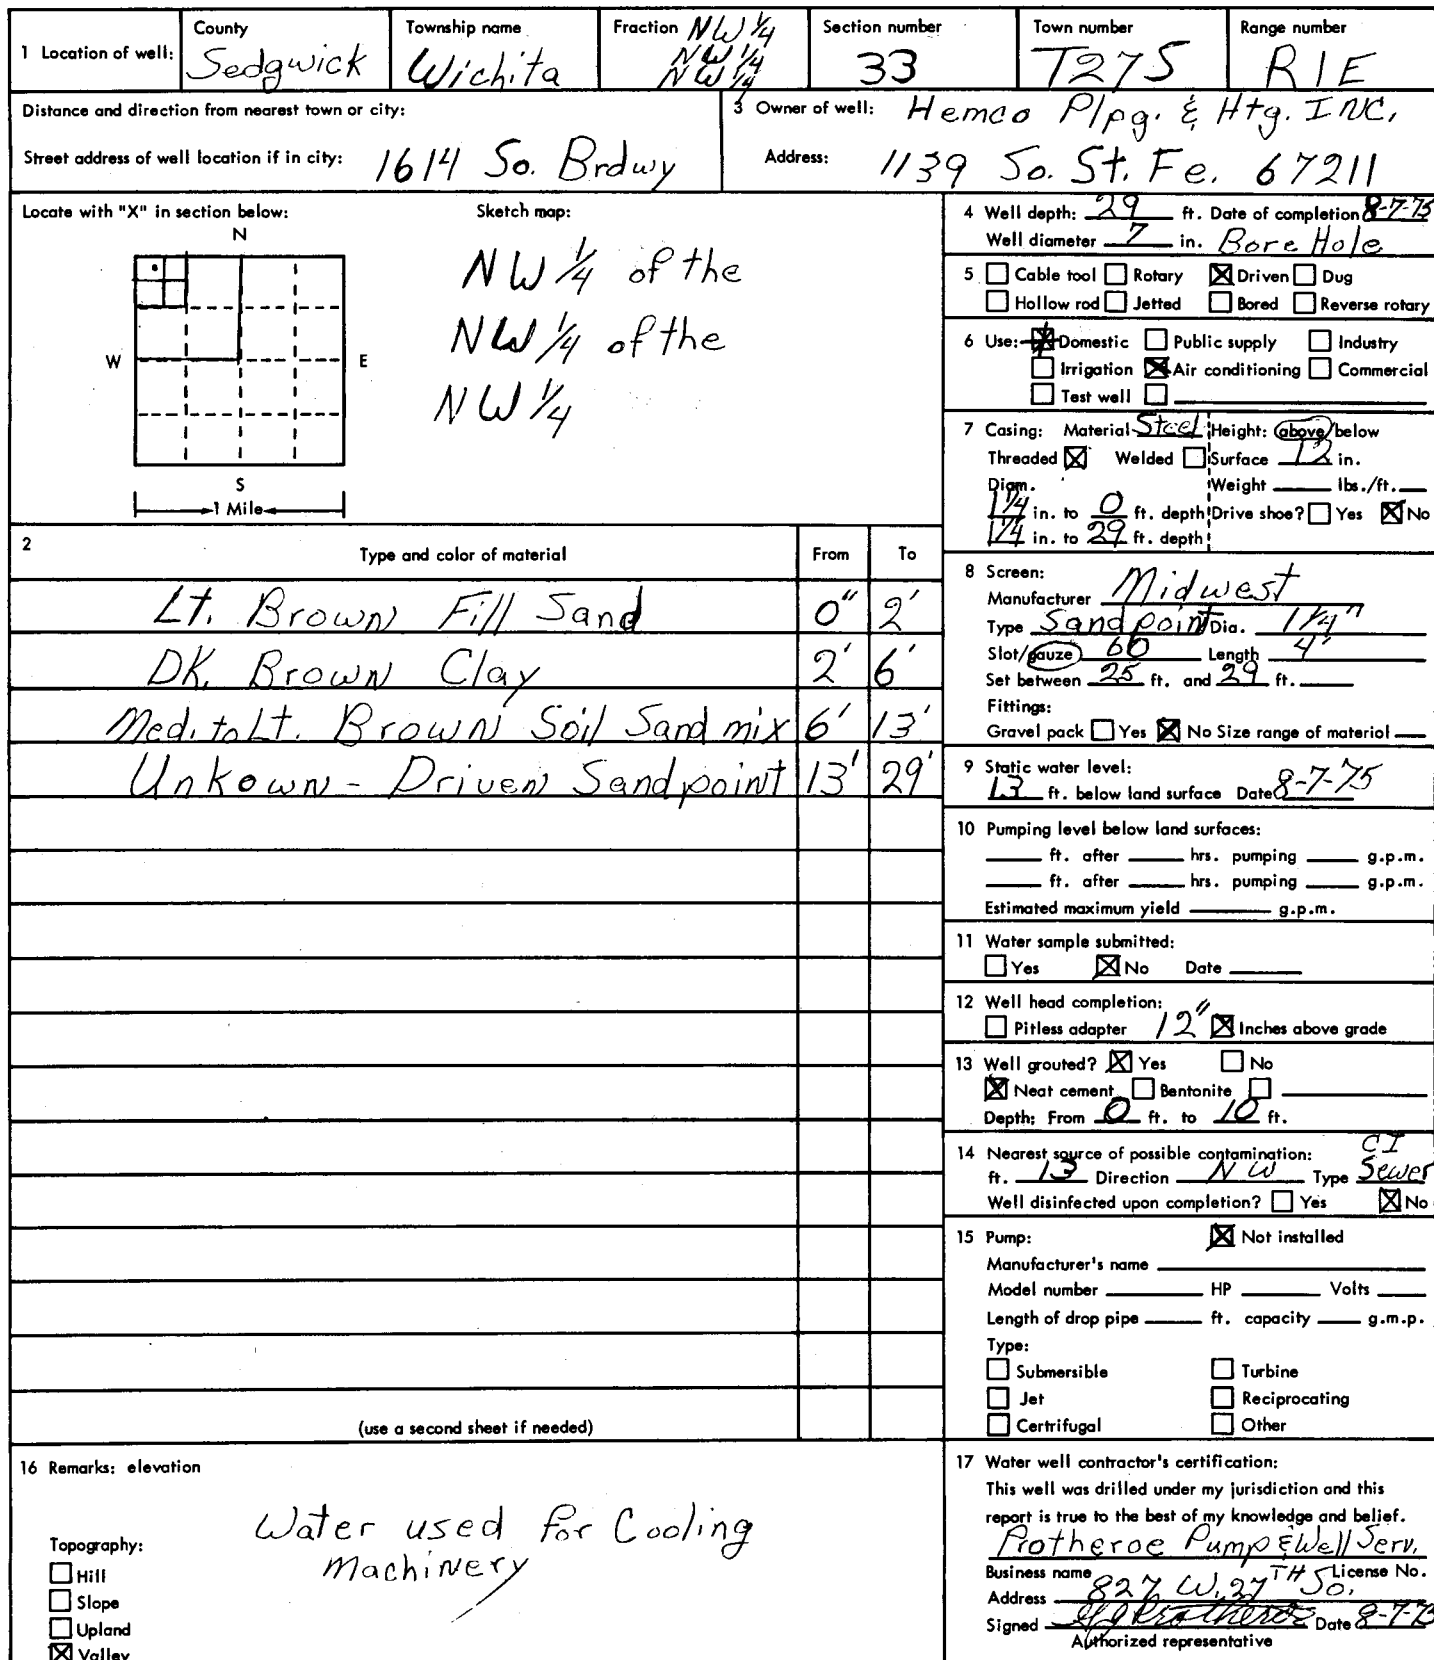 1 Location of well:
County
Sedgwick
Township name
Wichita
Fraction NW 1/4
NW 1/4
NW 1/4
Section number
33
Town number
T27S
Range number
R1E
Distance and direction from nearest town or city:
Street address of well location if in city: 1614 So. Brdwy
3 Owner of well: Hemco Plpg. & Htg. INC.
Address: 1139 So. St. Fe. 67211
Locate with "X" in section below:
N
W
E
S
1 Mile
Sketch map:
NW 1/4 of the
NW 1/4 of the
NW 1/4
2
Type and color of material From To
Lt. Brown Fill Sand 0" 2'
DK. Brown Clay 2' 6'
Med. to Lt. Brown Soil Sand mix 6' 13'
Unkown - Driven Sandpoint 13' 29'
(use a second sheet if needed)
4 Well depth: 29 ft. Date of completion 8-7-75
Well diameter 7 in. Bore Hole
5 Cable tool Rotary Driven Dug
Hollow rod Jetted Bored Reverse rotary
6 Use: Domestic Public supply Industry
Irrigation Air conditioning Commercial
Test well
7 Casing: Material Steel Height: above/below
Threaded Welded Surface 12 in.
Diam. Weight lbs./ft.
1 1/4 in. to 0 ft. depth Drive shoe? Yes No
1 1/4 in. to 29 ft. depth
8 Screen:
Manufacturer Midwest
Type Sandpoint Dia. 1 1/4"
Slot/gauze 60 Length 4'
Set between 25 ft. and 29 ft.
Fittings:
Gravel pack Yes No Size range of material
9 Static water level:
13 ft. below land surface Date 8-7-75
10 Pumping level below land surfaces:
ft. after hrs. pumping g.p.m.
ft. after hrs. pumping g.p.m.
Estimated maximum yield g.p.m.
11 Water sample submitted:
Yes No Date
12 Well head completion:
Pitless adapter 12" Inches above grade
13 Well grouted? Yes No
Neat cement Bentonite
Depth: From 0 ft. to 10 ft.
14 Nearest source of possible contamination: CI
ft. 13 Direction NW Type Sewer
Well disinfected upon completion? Yes No
15 Pump: Not installed
Manufacturer's name
Model number HP Volts
Length of drop pipe ft. capacity g.m.p.
Type:
Submersible Turbine
Jet Reciprocating
Certrifugal Other
16 Remarks: elevation
Water used for Cooling
Machinery
Topography:
Hill
Slope
Upland
Valley
17 Water well contractor's certification:
This well was drilled under my jurisdiction and this
report is true to the best of my knowledge and belief.
Protheroe Pump & Well Serv.
Business name License No.
Address 827 W. 27TH So.
Signed Protheroe Date 8-7-75
Authorized representative